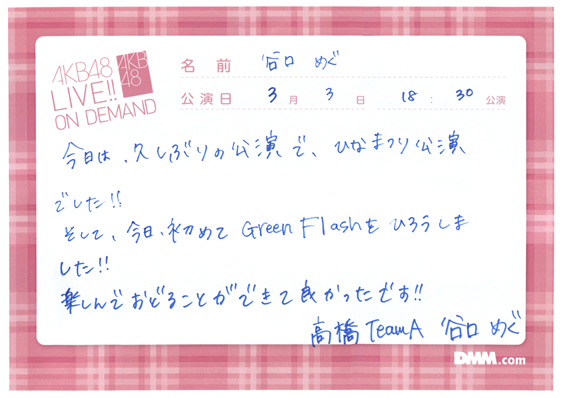 AKB48
LIVE!!
ON DEMAND
AKB
48
名 前 谷口 めぐ
公演日 3 月 3 日 18 : 30 公演
今日は、久しぶりの公演で、ひなまつり公演
でした!!
そして、今日、初めて Green Flashを ひろうしま
した!!
楽しんでおどることができて良かったです!!
高橋 Team A 谷口 めぐ
DMM.com